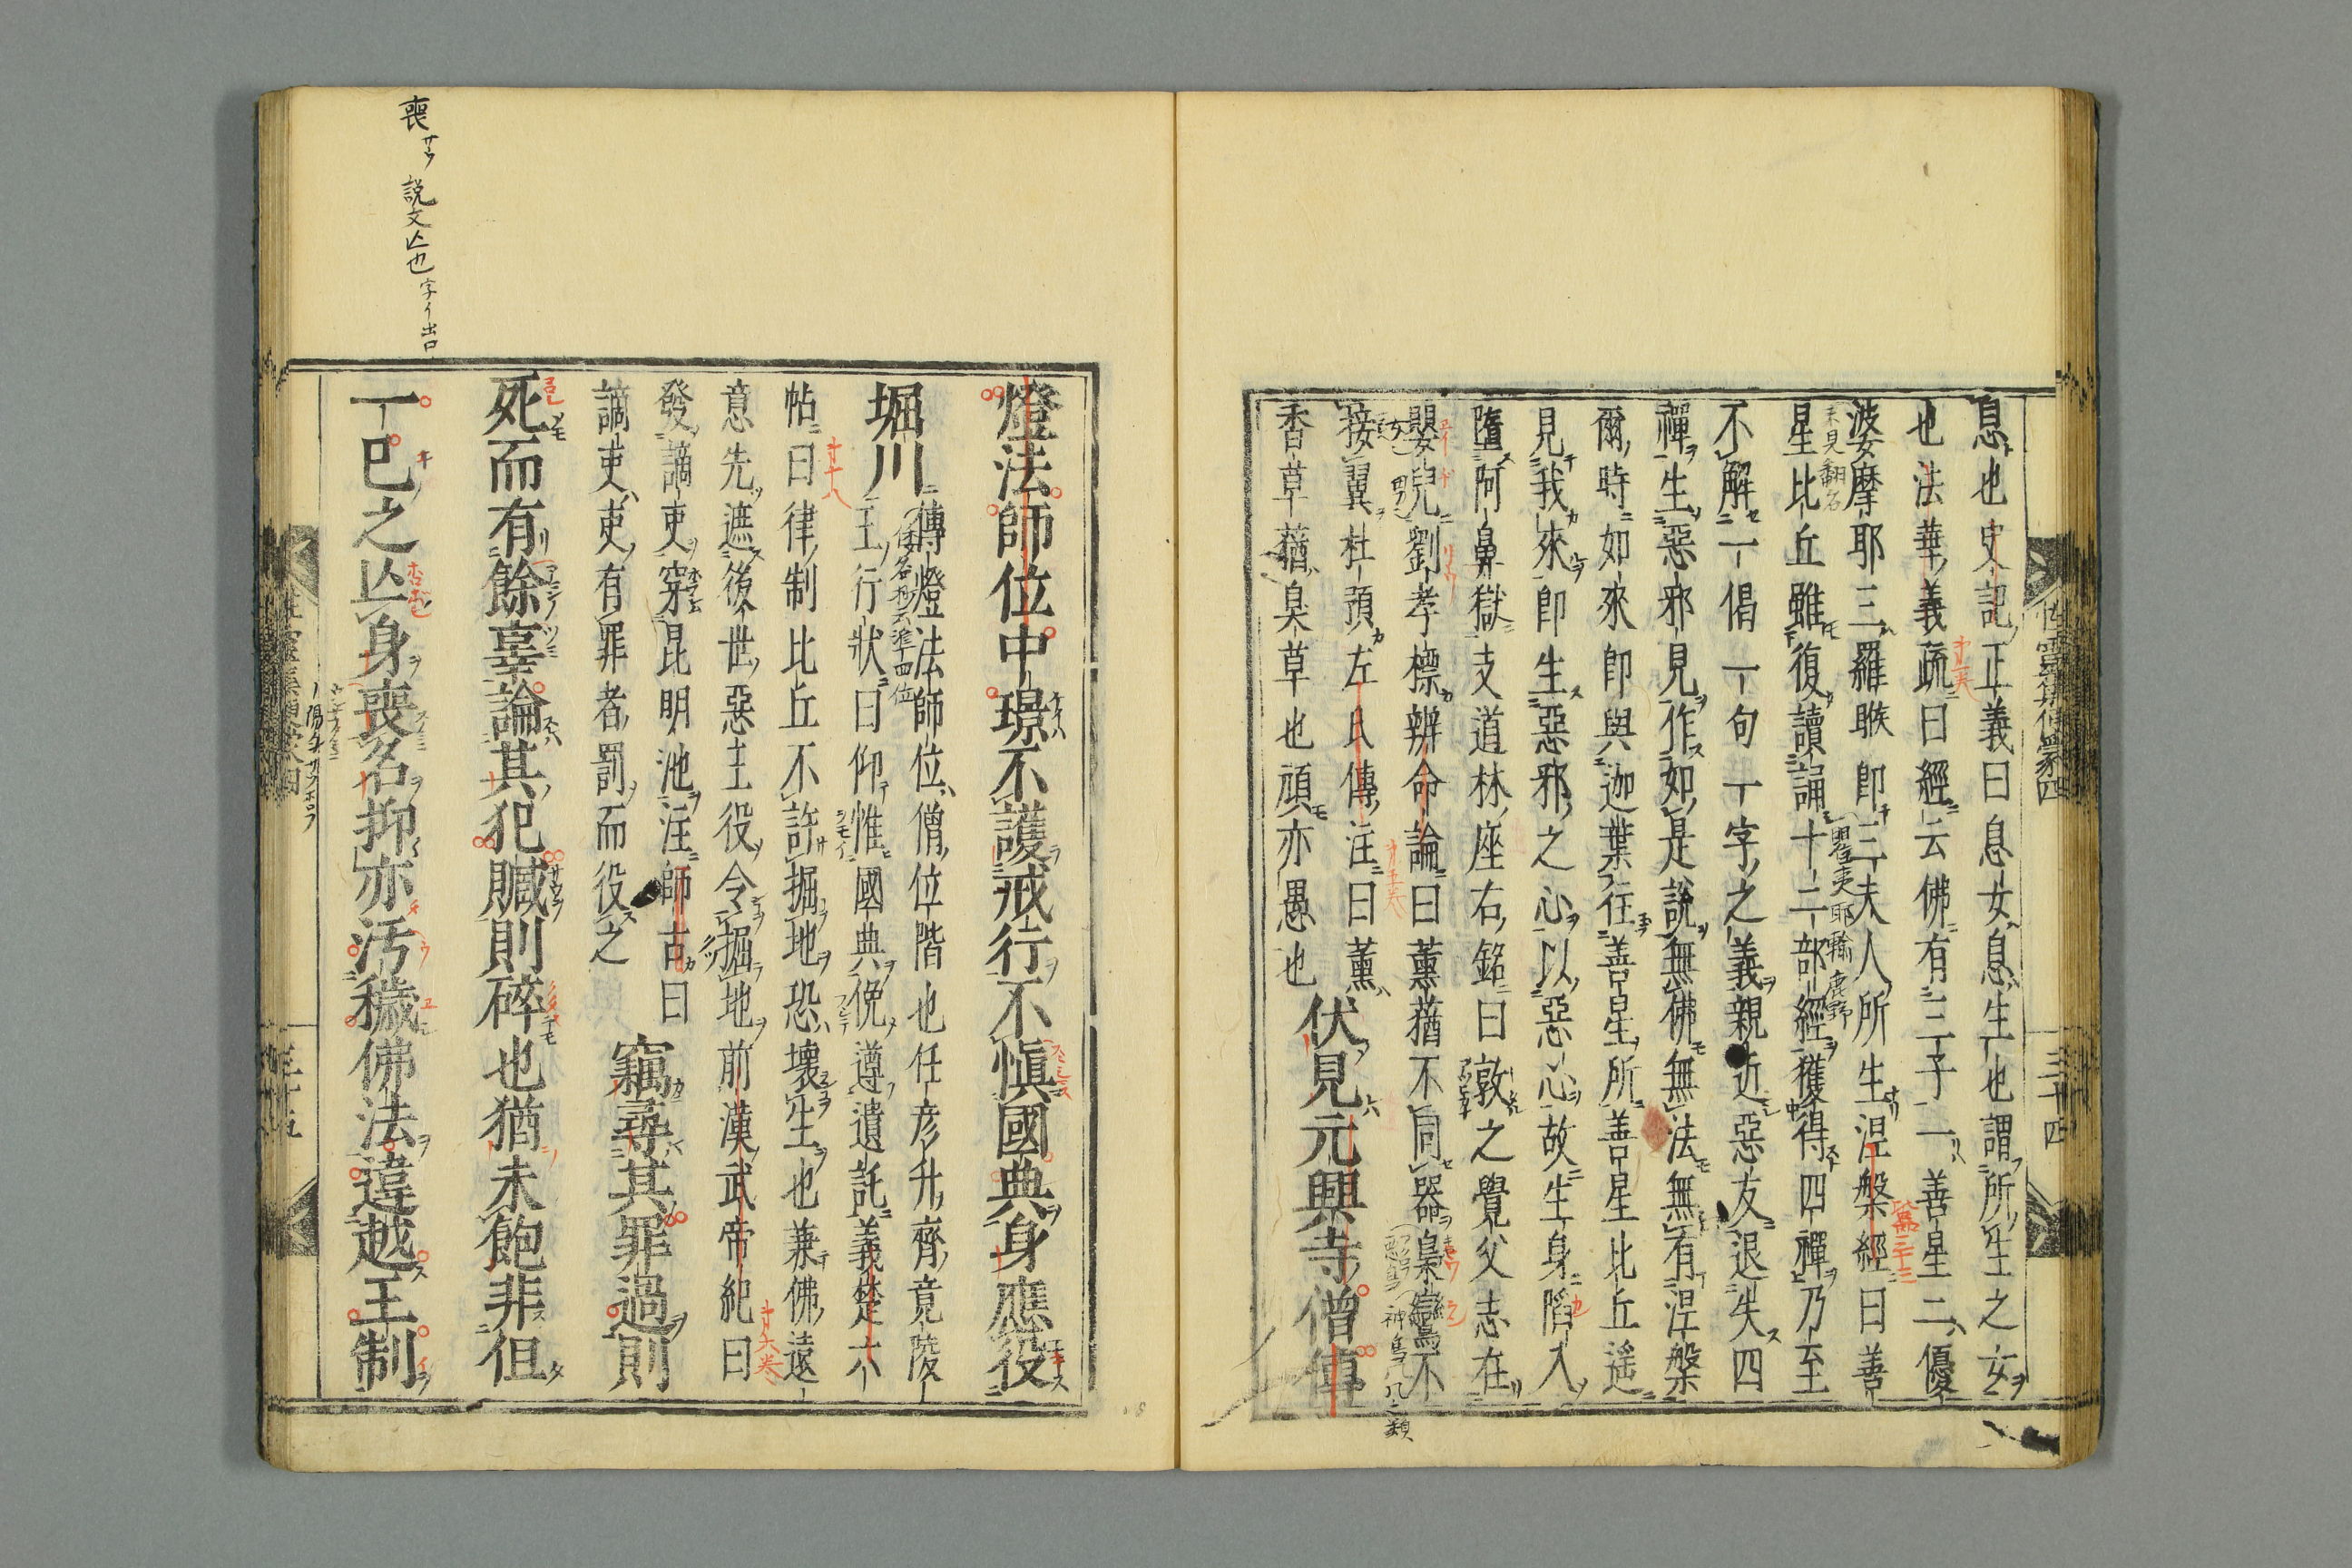 息也史記正義曰息女息生也謂所生之女
也法華義疏曰經云佛有三子一善星二優
婆摩耶三羅睺即三夫人所生涅槃經曰善
星比丘雖復讀誦十二部經獲得四禪乃至
不解一偈一句一字之義親近惡友退失四
禪生惡邪見作如是說無佛無法無有涅槃
爾時如來即與迦葉往善星所善星比丘遙
見我來即生惡邪之心以惡心故生身陷入
墮阿鼻獄支道林座右銘曰敦之覺父志在
嬰兒劉孝標辨命論曰薰蕕不同器梟鸞不
接翼杜預左氏傳注曰薰
香草蕕臭草也頑亦愚也
伏見元興寺僧傳
三十四
燈法師位中璟不護戒行不慎國典身應役
堀川
傳燈法師位僧位階也任彥升齊竟陵
王行狀曰仰惟國典俛遵遺託義楚六
帖曰律制比丘不許掘地恐壞生也兼佛遠
意先遮後世惡王役令掘地前漢武帝紀曰
發謫吏穿昆明池注師古曰
謫吏吏有罪者罰而役之
竊尋其罪過則
死而有餘辜論其犯贓則碎也猶未飽非但
一已之亾身喪名抑亦汚穢佛法違越王制
喪 説文亾也